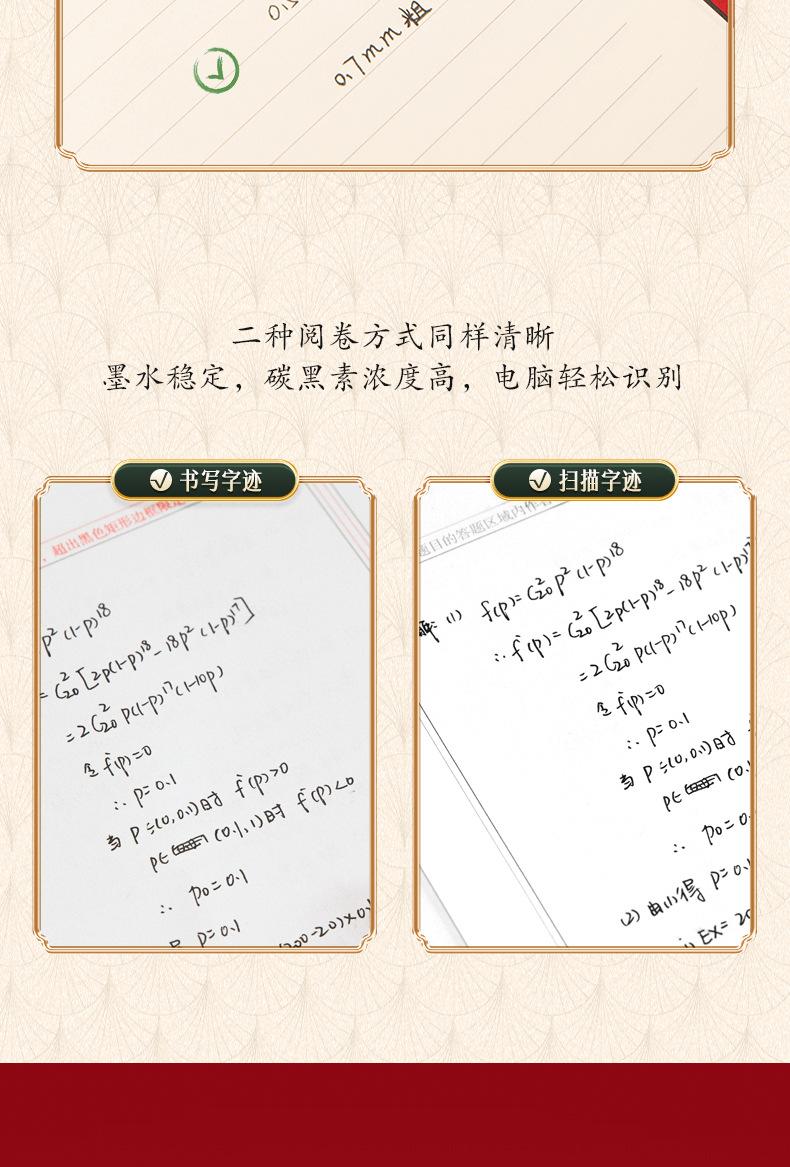 0.7mm 粗
二种阅卷方式同样清晰
墨水稳定，碳黑素浓度高，电脑轻松识别
书写字迹
超出黑色矩形边框限定
p²(1-p)¹⁸
= C₂₀²[2p(1-p)¹⁸-18p²(1-p)¹⁷]
=2C₂₀²p(1-p)¹⁷(1-10p)
令f'(p)=0
∴ p=0.1
当 P∈(0,0.1)时 f'(p)>0
p∈ (0.1,1)时 f'(p)<0
∴ p₀=0.1
p=0.1
00-20)×0.1
扫描字迹
题目的答题区域内作答
解(1) f(p)=C₂₀²p²(1-p)¹⁸
∴f'(p)=C₂₀²[2p(1-p)¹⁸-18p²(1-p)¹⁷
=2C₂₀²p(1-p)¹⁷(1-10p)
令f'(p)=0
∴ p=0.1
当 P∈(0,0.1)时
p∈ (0.
∴ p₀=0.
(2) 由(1)得 p=0.1
EX=20